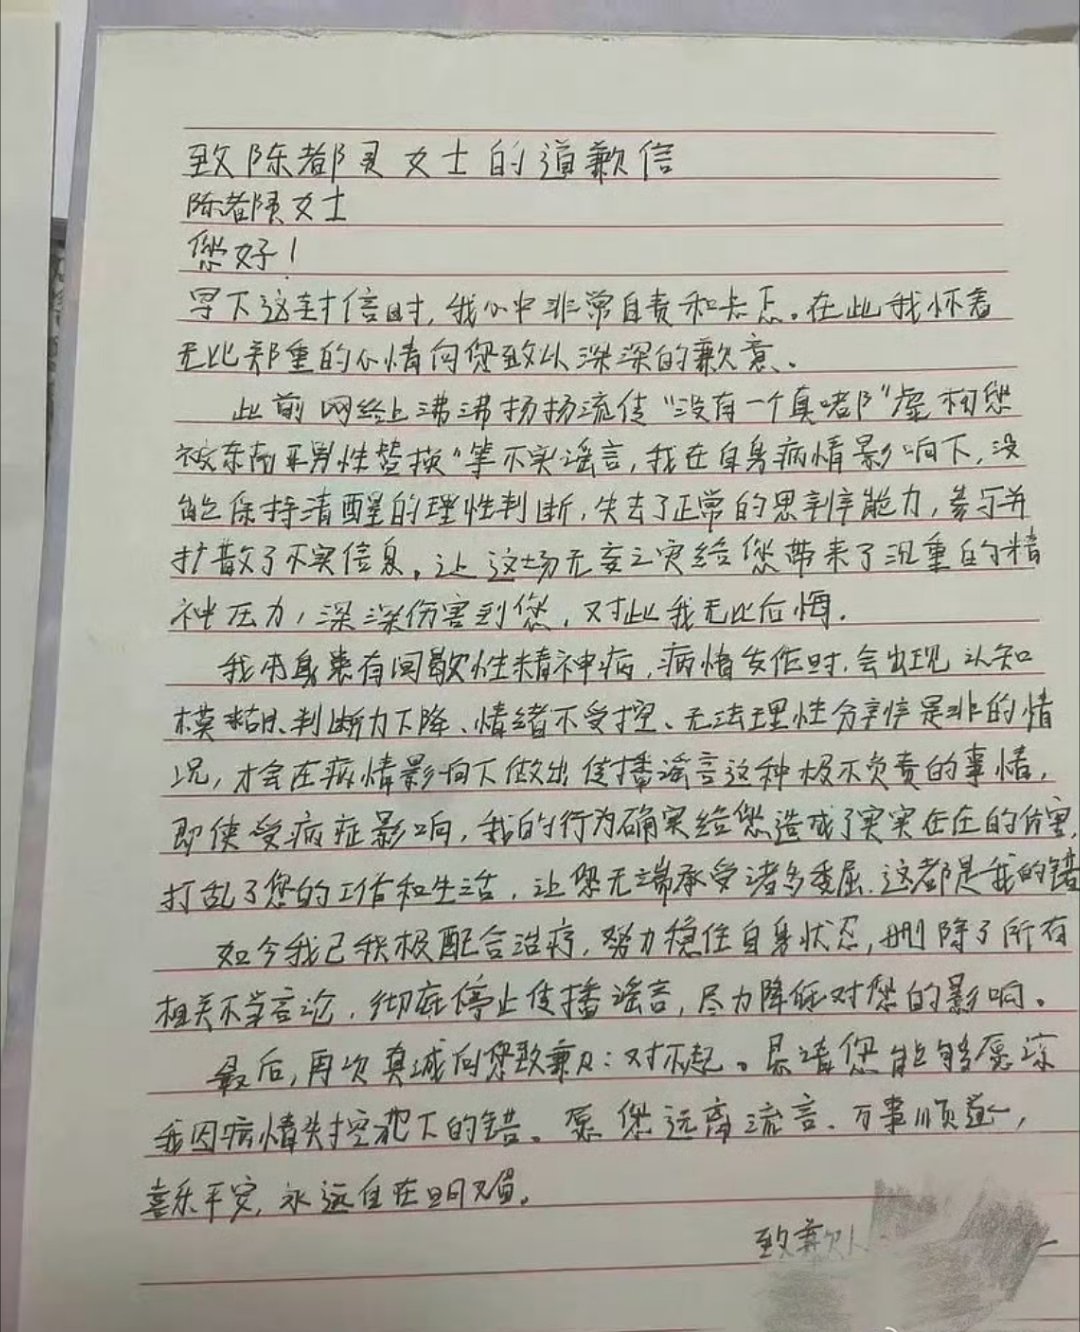 致陈都灵女士的道歉信
陈都灵女士
您好!
写下这封信时,我心中非常自责和忐忑。在此我怀着
无比郑重的心情向您致以深深的歉意。
此前网络上沸沸扬扬流传"没有一个真啫阝"虚构您
被东南亚男性替换"等不实谣言,我在自身病情影响下,没
能保持清醒的理性判断,失去了正常的思辨能力,参与并
扩散了不实信息。让这场无妄之灾给您带来了沉重的精
神压力,深深伤害到您,对此我无比后悔.
我本身患有间歇性精神病,病情发作时,会出现认知
模糊、判断力下降、情绪不受控、无法理性分辨是非的情
况,才会在病情影响下做出传播谣言这种极不负责的事情,
即使受病症影响,我的行为确实给您造成了实实在在的伤害,
打乱了您的工作和生活,让您无端承受诸多委屈.这都是我的错
如今我已积极配合治疗,努力稳住自身状态,删除了所有
相关不当言论,彻底停止传播谣言,尽力降低对您的影响。
最后,再次真诚向您致歉:对不起。恳请您能够原谅
我因病情失控犯下的错。愿您远离流言、万事顺遂,
喜乐平安,永远自在明媚。
致歉人